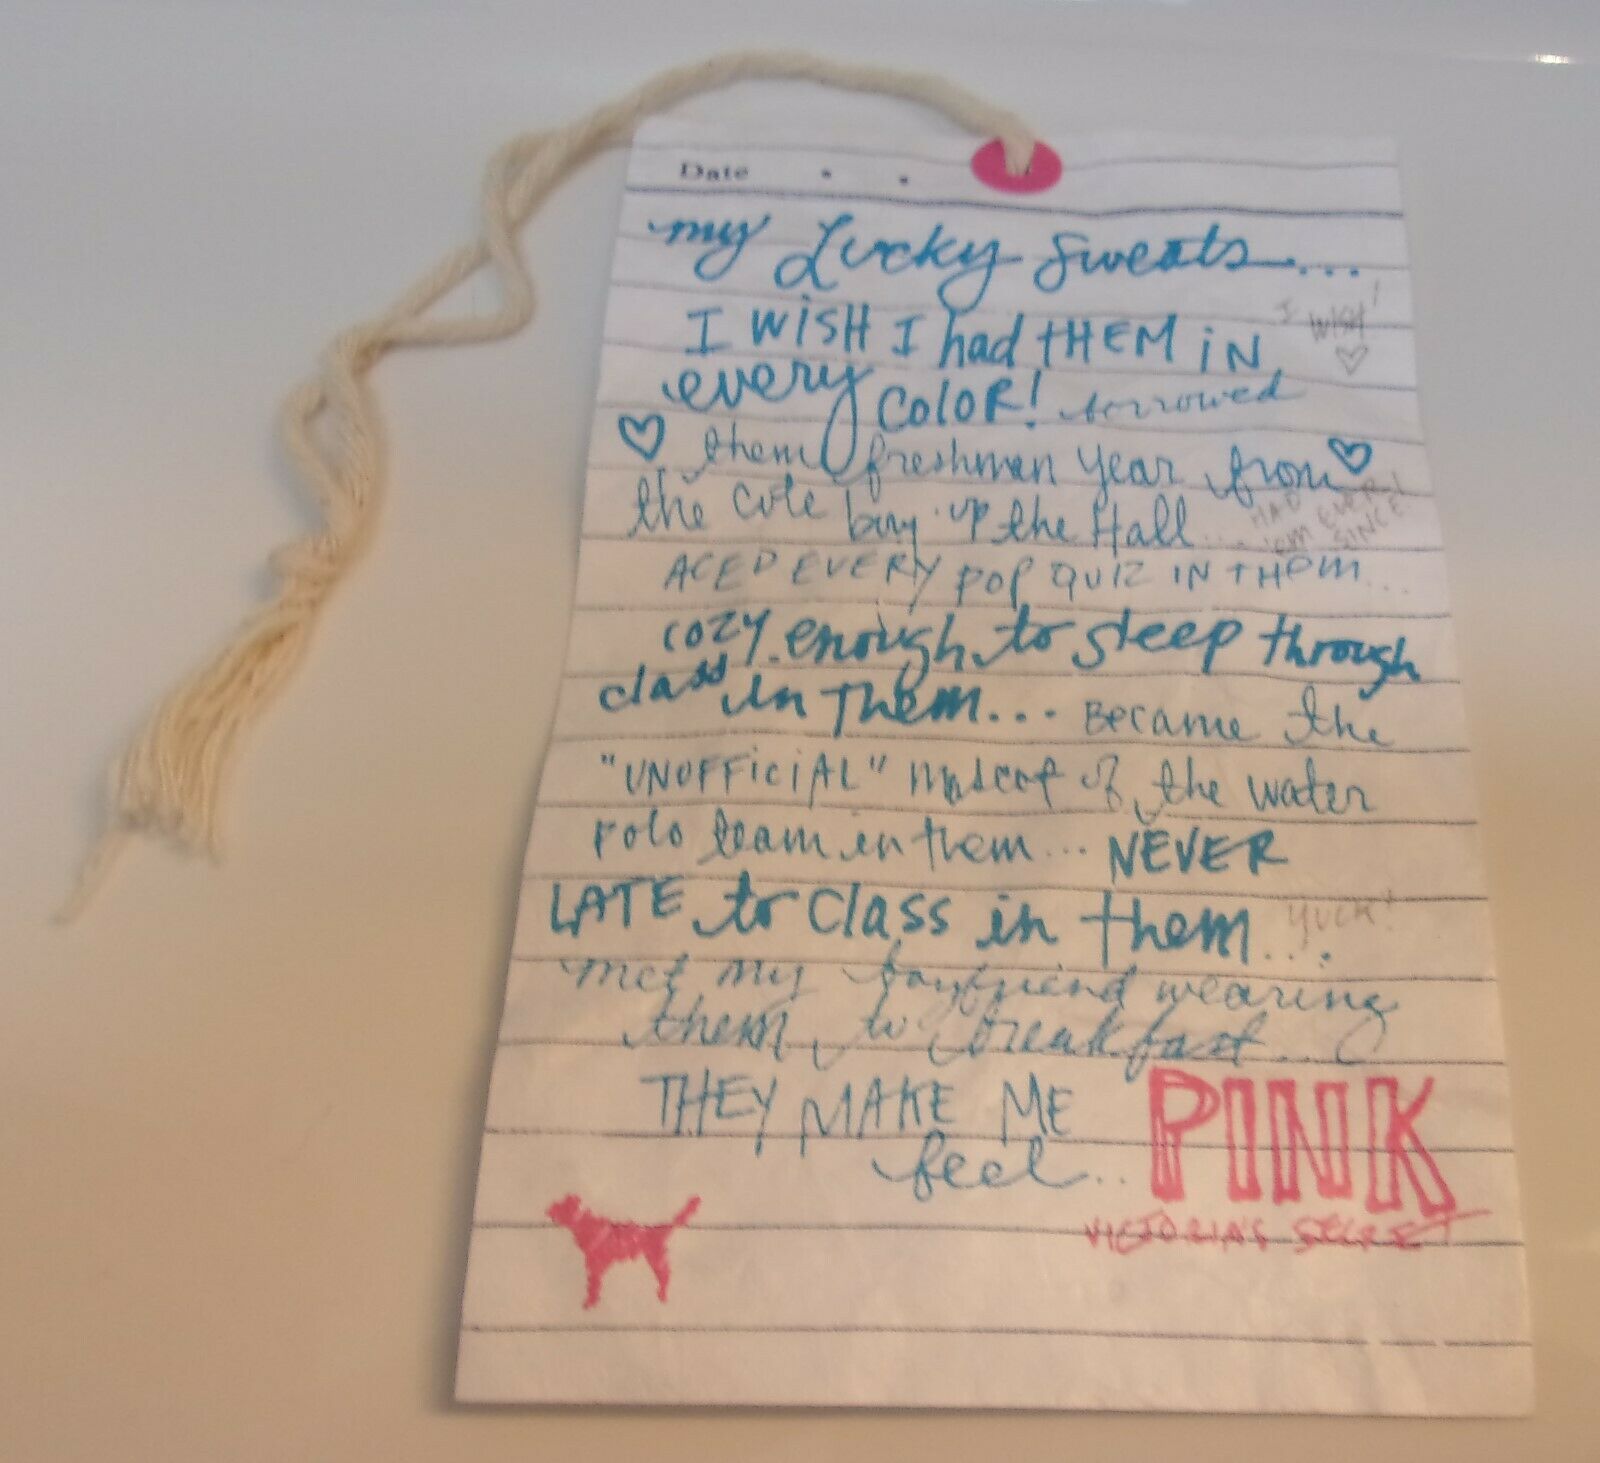 Date . .
my Lucky Sweats...
I WISH I had tHEM iN
I WISH!
every COlOR! borrowed
them freshman year from
the cute boy up the Hall...
HAD 'em EVER SINCE!
ACED EVERY pop QUIZ IN tHEM...
cozy enough to sleep through
class in Them... Became the
"UNOFFiCiAL" mascot of the water
polo team in them... NEVER
LATE to Class in them...
YUCK!
met my boyfriend wearing
them to breakfast...
THEY MAKE ME
feel... PINK
VICTORIA'S SECRET